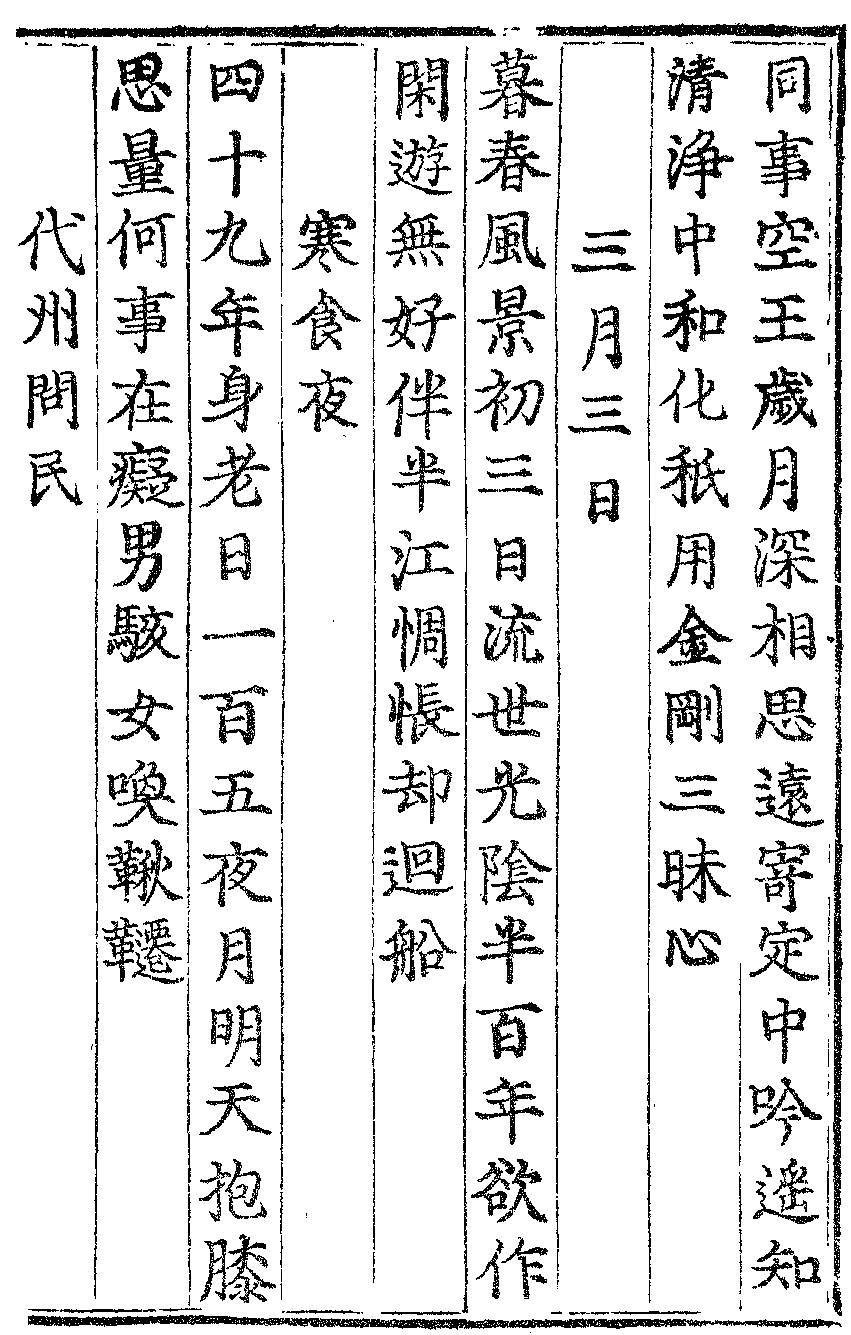 同事空王歲月深相思遠寄定中吟遥知
清淨中和化秖用金剛三昧心
三月三日
暮春風景初三日流世光陰半百年欲作
閑遊無好伴半江惆悵却迴船
寒食夜
四十九年身老日一百五夜月明天抱膝
思量何事在癡男騃女喚鞦韆
代州問民